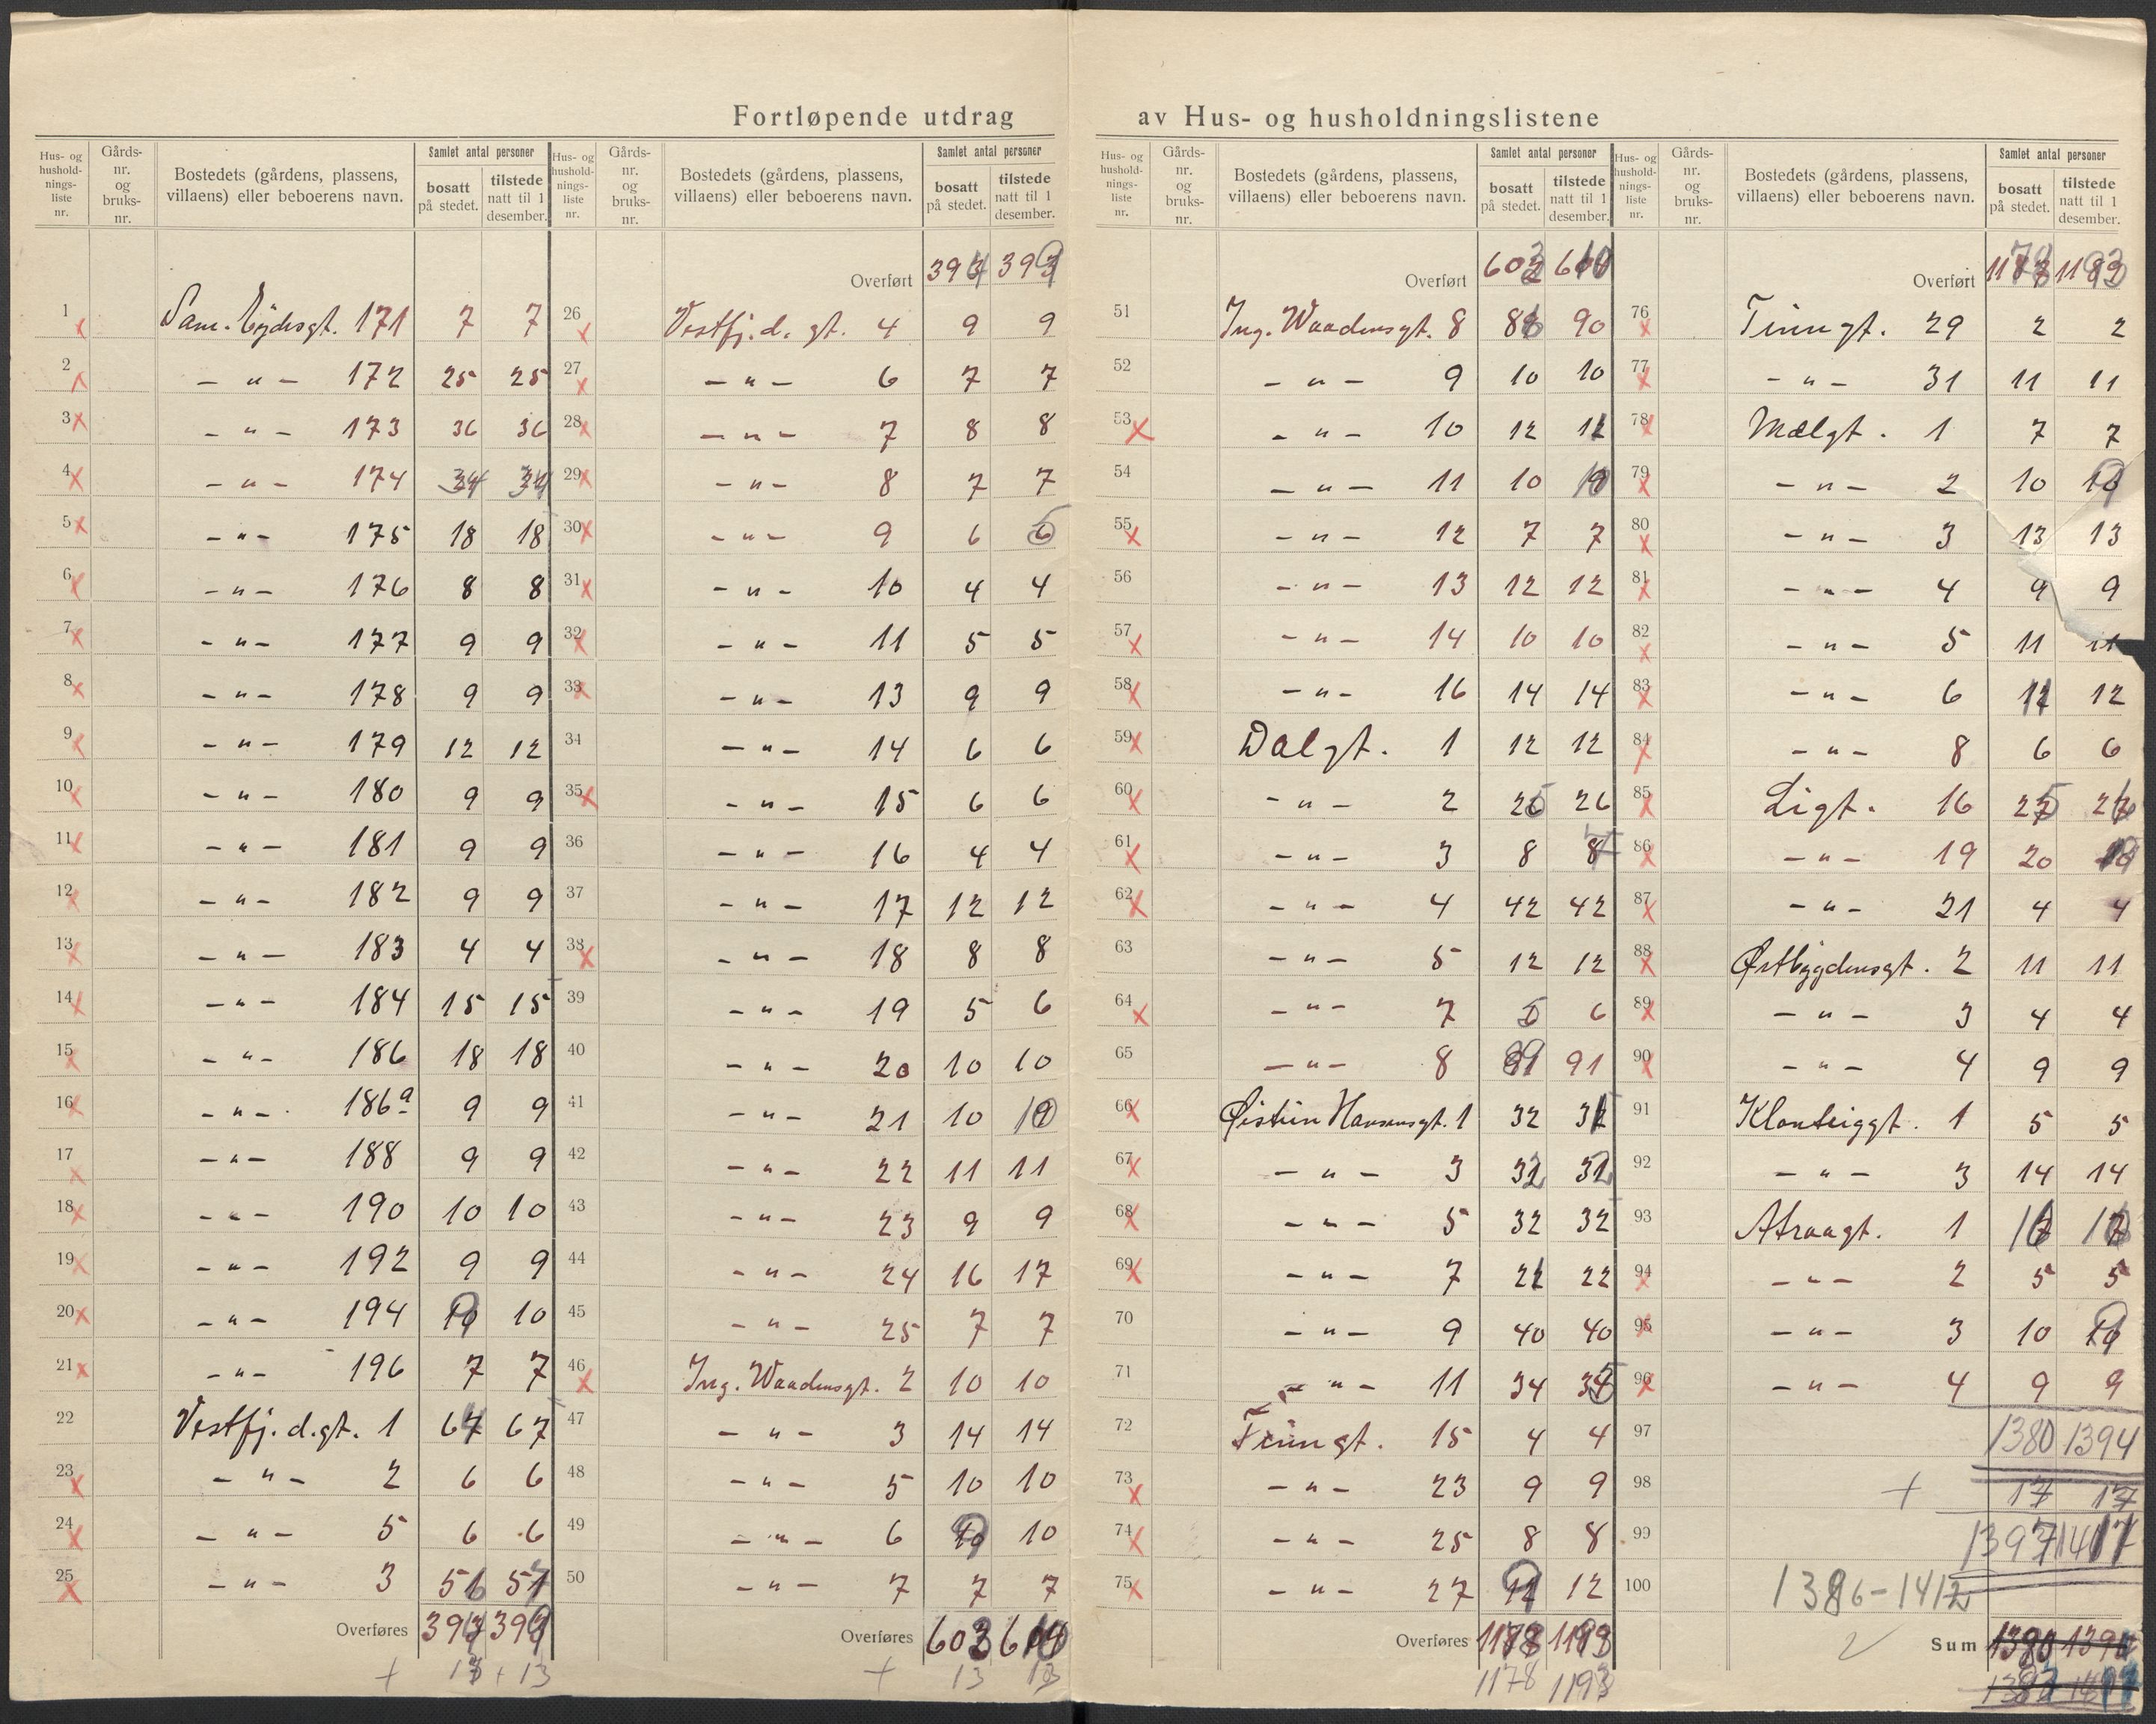 Fortløpende utdrag av Hus- og husholdningslistene
Hus- og husholdningsliste nr. Gårds-nr. og bruks-nr. Bostedets (gårdens, plassens, villaens) eller beboerens navn. Samlet antal personer bosatt på stedet. tilstede natt til 1 desember.
1 Sam. Eydesgt. 171 7 7
2 – " – 172 25 25
3 – " – 173 36 36
4 – " – 174 34 34
5 – " – 175 18 18
6 – " – 176 8 8
7 – " – 177 9 9
8 – " – 178 9 9
9 – " – 179 12 12
10 – " – 180 9 9
11 – " – 181 9 9
12 – " – 182 9 9
13 – " – 183 4 4
14 – " – 184 15 15
15 – " – 186 18 18
16 – " – 186a 9 9
17 – " – 188 9 9
18 – " – 190 10 10
19 – " – 192 9 9
20 – " – 194 10
21 – " – 196 7 7
22 Vestfj.d.gt. 1 67
23 – " – 2 6 6
24 – " – 5 6 6
25 – " – 3
Overføres
+ 13 + 13
Hus- og husholdningsliste nr. Gårds-nr. og bruks-nr. Bostedets (gårdens, plassens, villaens) eller beboerens navn. Samlet antal personer bosatt på stedet. tilstede natt til 1 desember.
Overført
26 Vestfj.d. gt. 4 9 9
27 – " – 6 7 7
28 – " – 7 8 8
29 – " – 8 7 7
30 – " – 9 6
31 – " – 10 4 4
32 – " – 11 5 5
33 – " – 13 9 9
34 – " – 14 6 6
35 – " – 15 6 6
36 – " – 16 4 4
37 – " – 17 12 12
38 – " – 18 8 8
39 – " – 19 5 6
40 – " – 20 10 10
41 – " – 21 10
42 – " – 22 11 11
43 – " – 23 9 9
44 – " – 24 16 17
45 – " – 25 7 7
46 Ing. Waadensgt. 2 10 10
47 – " – 3 14 14
48 – " – 5 10 10
49 – " – 6 10
50 – " – 7 7 7
Overføres 603 610
+ 13
Hus- og husholdningsliste nr. Gårds-nr. og bruks-nr. Bostedets (gårdens, plassens, villaens) eller beboerens navn. Samlet antal personer bosatt på stedet. tilstede natt til 1 desember.
Overført 603 610
51 Ing. Waadensgt. 8 90
52 – " – 9 10 10
53 – " – 10 12
54 – " – 11 10
55 – " – 12 7 7
56 – " – 13 12 12
57 – " – 14 10 10
58 – " – 16 14 14
59 Dalgt. 1 12 12
60 – " – 2 26
61 – " – 3 8
62 – " – 4 42 42
63 – " – 5 12 12
64 – " – 7 6
65 – " – 8 91
66 Øistein Hansensgt. 1 32
67 – " – 3
68 – " – 5 32 32
69 – " – 7 22
70 – " – 9 40 40
71 – " – 11 34
72 Tinngt. 15 4 4
73 – " – 23 9 9
74 – " – 25 8 8
75 – " – 27 12
Overføres 1178 1193
1178 1193
Hus- og husholdningsliste nr. Gårds-nr. og bruks-nr. Bostedets (gårdens, plassens, villaens) eller beboerens navn. Samlet antal personer bosatt på stedet. tilstede natt til 1 desember.
Overført 1178 1193
76 Tinngt. 29 2 2
77 – " – 31 11 11
78 Mælgt. 1 7 7
79 – " – 2 10
80 – " – 3 13 13
81 – " – 4 9 9
82 – " – 5 11 11
83 – " – 6 12
84 – " – 8 6 6
85 Ligt. 16
86 – " – 19 20
87 – " – 21 4 4
88 Østbygdensgt. 2 11 11
89 – " – 3 4 4
90 – " – 4 9 9
91 Kloster­iggt. 1 5 5
92 – " – 3 14 14
93 Atraagt. 1
94 – " – 2 5 5
95 – " – 3 10
96 – " – 4 9 9
97 1380 1394
98 + 17 17
99 1397
100 1386 – 1412
Sum